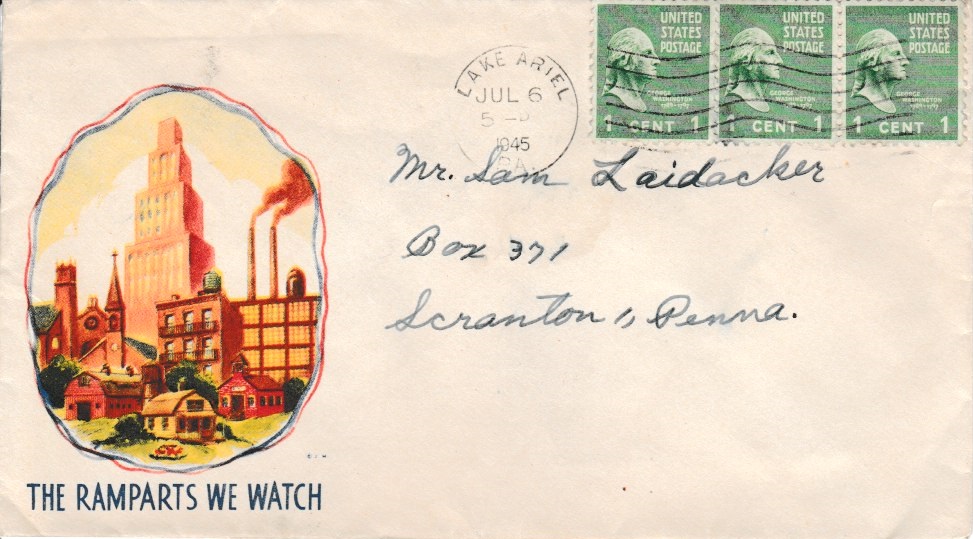 UNITED STATES POSTAGE
GEORGE WASHINGTON
1 CENT 1
UNITED STATES POSTAGE
GEORGE WASHINGTON
1 CENT 1
UNITED STATES POSTAGE
GEORGE WASHINGTON
1 CENT 1
LAKE ARIEL
JUL 6
5
1945
PA.
Mr. Sam Laidacker
Box 371
Scranton, Penna.
THE RAMPARTS WE WATCH